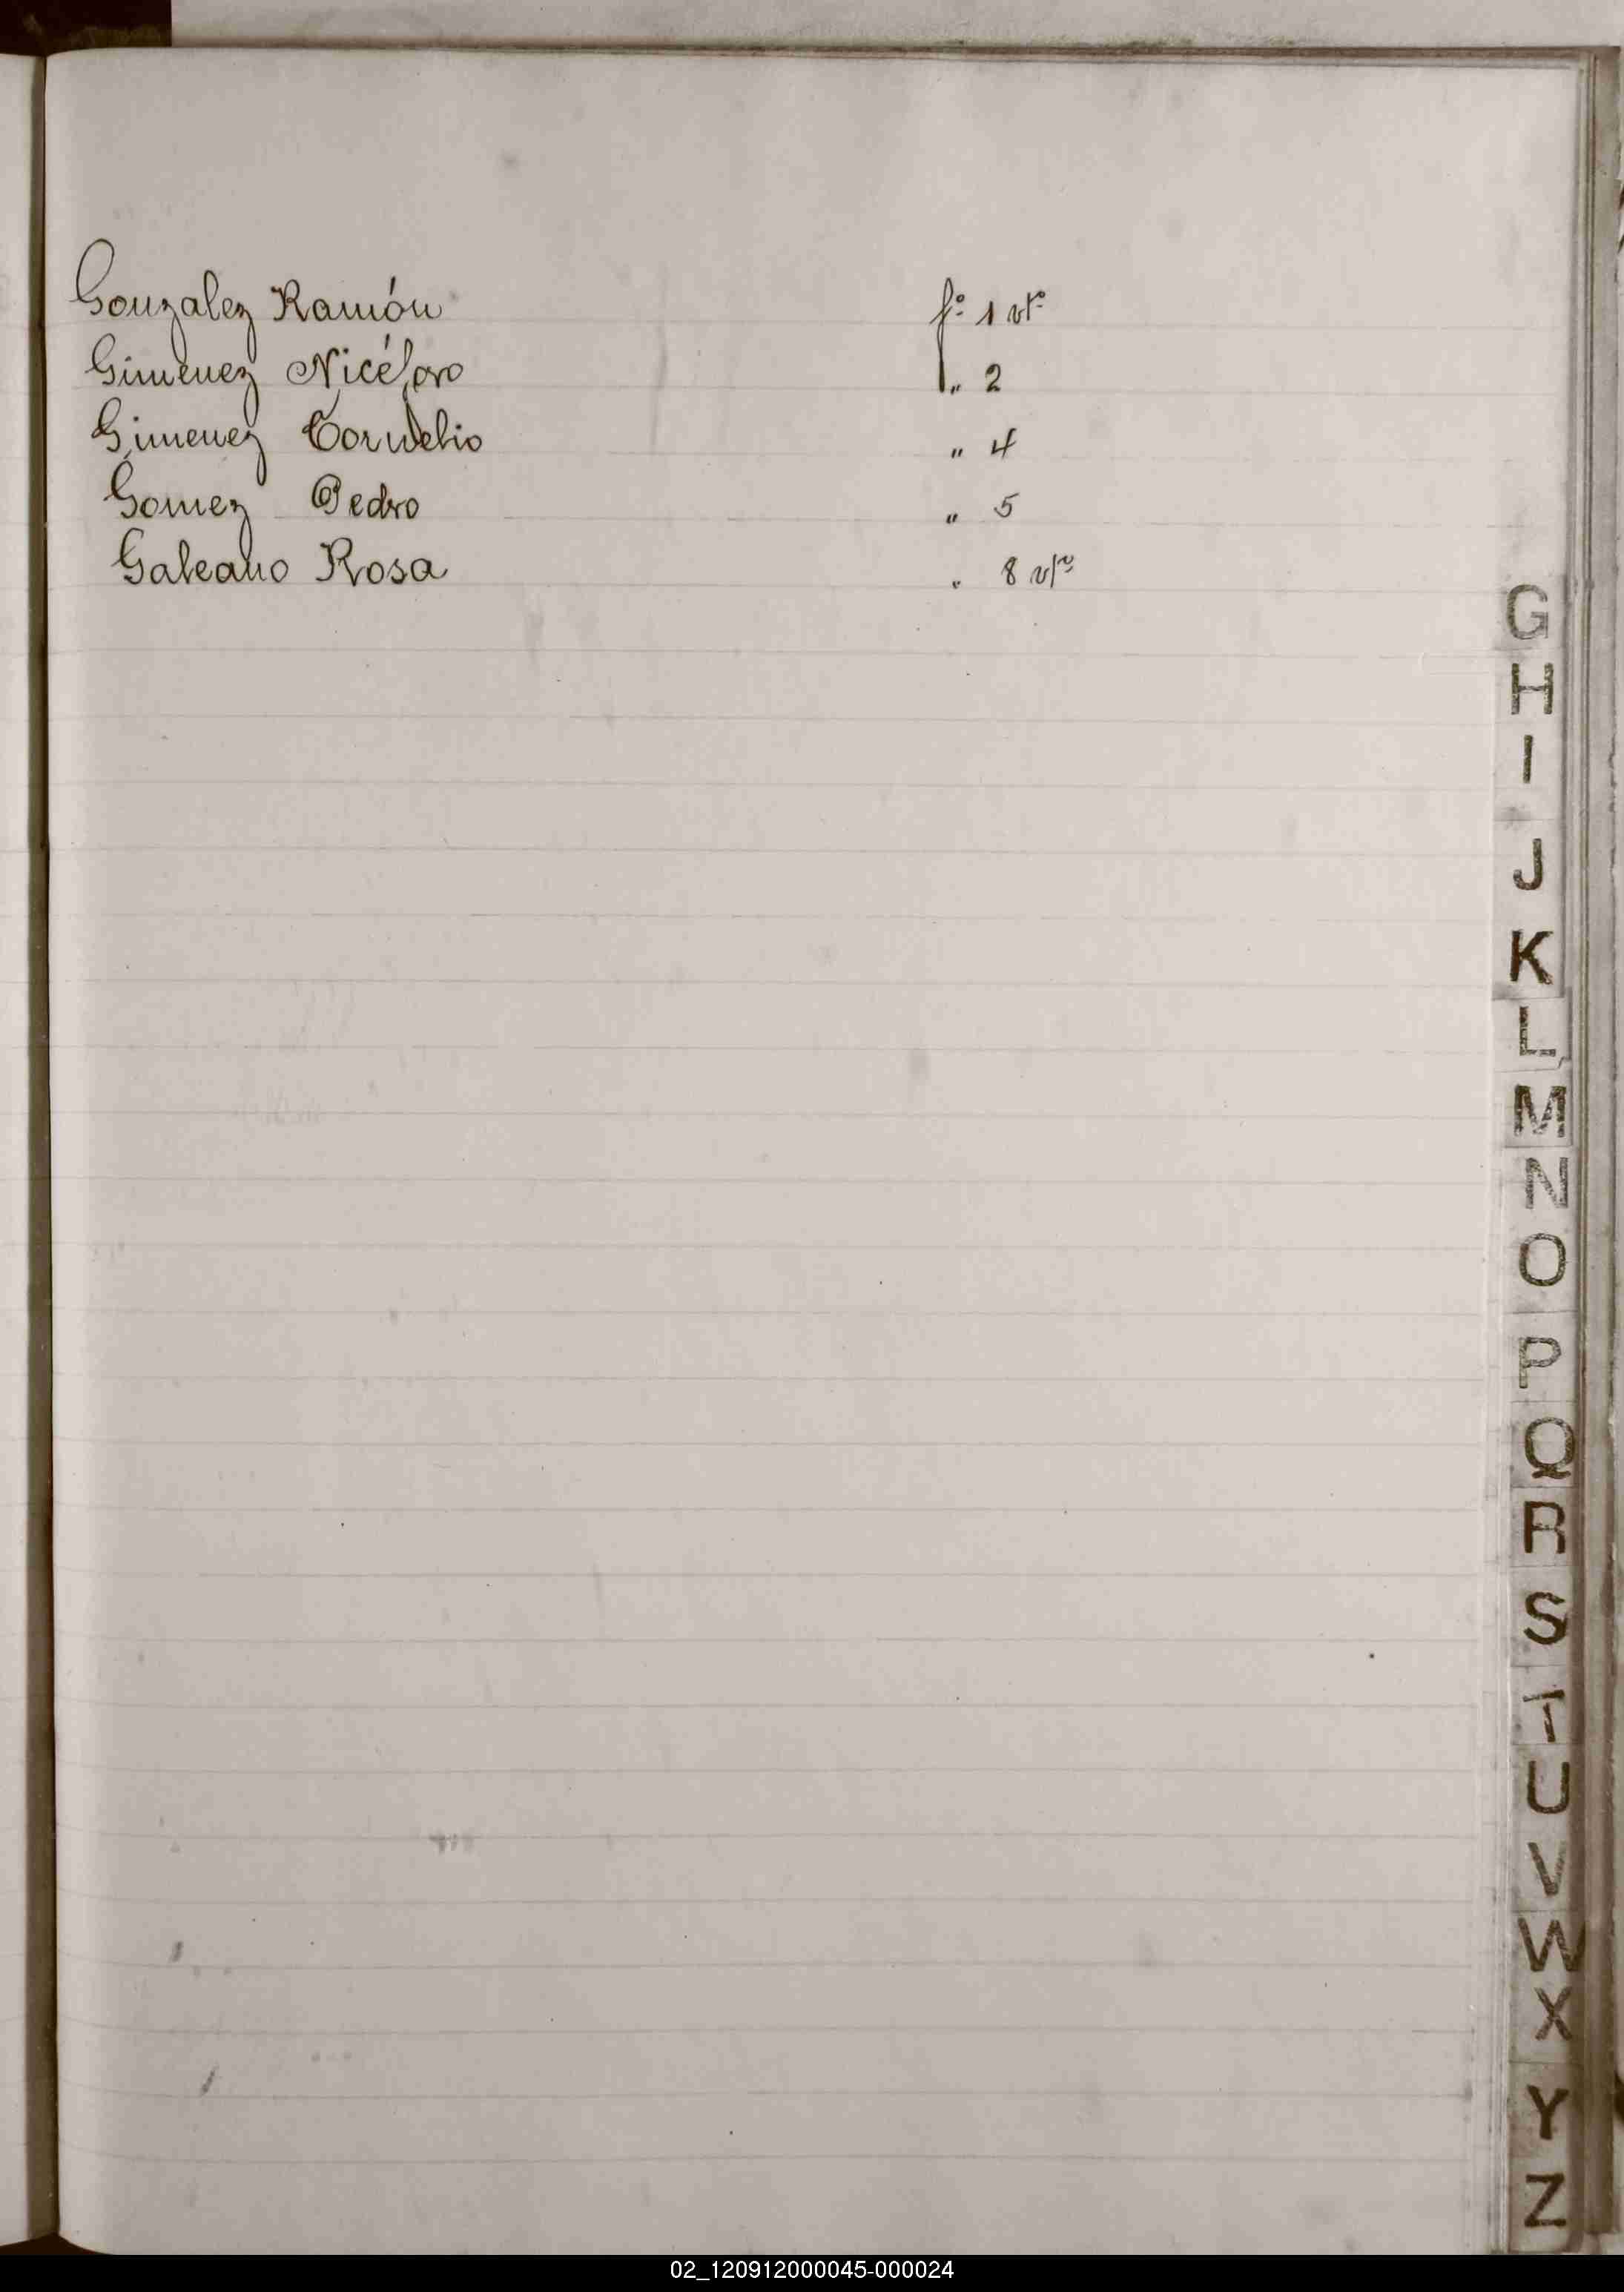 Gonzalez Ramón fº 1 vtº
Gimenez Nicéforo „ 2
Gimenez Cornelio „ 4
Gomez Pedro „ 5
Galeano Rosa „ 8 vtº
G
H
I
J
K
L
M
N
O
P
Q
R
S
T
U
V
W
X
Y
Z
02_120912000045-000024